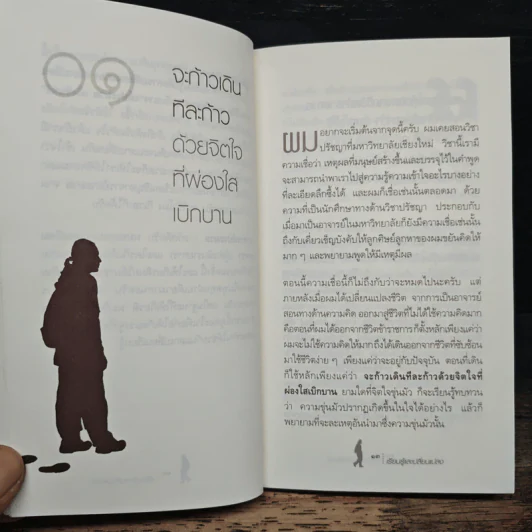 ๐๑
จะก้าวเดิน
ทีละก้าว
ด้วยจิตใจ
ที่ผ่องใส
เบิกบาน
ผม อยากจะเริ่มต้นจากจุดนี้ครับ ผมเคยสอนวิชา
ปรัชญาที่มหาวิทยาลัยเชียงใหม่ วิชานี้เรามี
ความเชื่อว่า เหตุผลที่มนุษย์สร้างขึ้นและบรรจุไว้ในคำพูด
จะสามารถนำพาเราไปสู่ความรู้ความเข้าใจอะไรบางอย่าง
ที่ละเอียดลึกซึ้งได้ และผมก็เชื่อเช่นนั้นตลอดมา ด้วย
ความที่เป็นนักศึกษาทางด้านวิชาปรัชญา ประกอบกับ
เมื่อมาเป็นอาจารย์ในมหาวิทยาลัยก็ยังมีความเชื่อเช่นนั้น
ถึงกับเคี่ยวเข็ญบังคับให้ลูกศิษย์ลูกหาของผมขยันคิดให้
มาก ๆ และพยายามพูดให้มีเหตุมีผล
ตอนนี้ความเชื่อนี้ก็ไม่ถึงกับว่าจะหมดไปนะครับ แต่
ภายหลังเมื่อผมได้เปลี่ยนแปลงชีวิต จากการเป็นอาจารย์
สอนทางด้านความคิด ออกมาสู่ชีวิตที่ไม่ได้ใช้ความคิดมาก
คือตอนที่ผมได้ออกจากชีวิตข้าราชการก็ตั้งหลักเพียงแค่ว่า
ผมจะไม่ใช้ความคิดให้มากถึงได้เดินออกจากชีวิตที่ซับซ้อน
มาใช้ชีวิตง่าย ๆ เพียงแค่ว่าจะอยู่กับปัจจุบัน ตอนที่เดิน
ก็ใช้หลักเพียงแค่ว่า จะก้าวเดินทีละก้าวด้วยจิตใจที่
ผ่องใสเบิกบาน ยามใดที่จิตใจขุ่นมัว ก็จะเรียนรู้ทบทวน
ว่า ความขุ่นมัวปรากฏเกิดขึ้นในใจได้อย่างไร แล้วก็
พยายามที่จะละเหตุอันนำมาซึ่งความขุ่นมัวนั้น
๑๓ เรียนรู้และเปลี่ยนแปลง